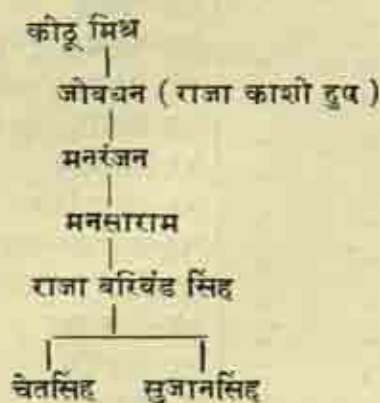 कीठू मिश्र
जीवधन ( राजा काशी दुप )
मनरंजन
मनसाराम
राजा बरिवंड सिंह
चेतसिंह सुजानसिंह